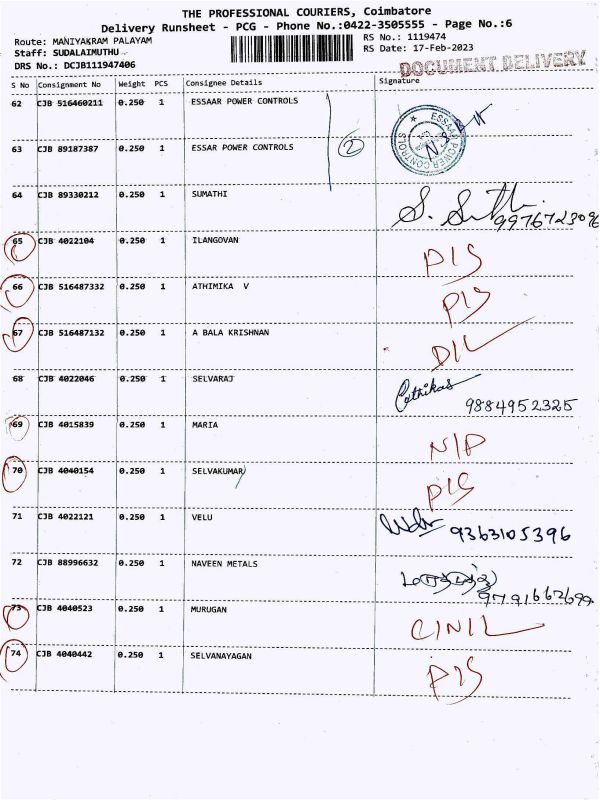 THE PROFESSIONAL COURIERS, Coimbatore
Delivery Runsheet - PCG - Phone No.:0422-3505555 - Page No.:6
Route: MANIYAKRAM PALAYAM RS No.: 1119474
Staff: SUDALAIMUTHU RS Date: 17-Feb-2023
DRS No.: DCJB111947406 DOCUMENT DELIVERY
S No Consignment No Weight PCS Consignee Details Signature
62 CJB 516460211 0.250 1 ESSAAR POWER CONTROLS
ESSAAR POWER CONTROLS
63 CJB 89187387 0.250 1 ESSAR POWER CONTROLS 2
64 CJB 89330212 0.250 1 SUMATHI
9976723096
65 CJB 4022104 0.250 1 ILANGOVAN PIS
66 CJB 516487332 0.250 1 ATHIMIKA V PIS
67 CJB 516487132 0.250 1 A BALA KRISHNAN DIL
68 CJB 4022046 0.250 1 SELVARAJ
9884952325
69 CJB 4015839 0.250 1 MARIA NIP
70 CJB 4040154 0.250 1 SELVAKUMAR PIS
71 CJB 4022121 0.250 1 VELU 9363105396
72 CJB 88996632 0.250 1 NAVEEN METALS
73 CJB 4040523 0.250 1 MURUGAN CINIL
74 CJB 4040442 0.250 1 SELVANAYAGAN PIS